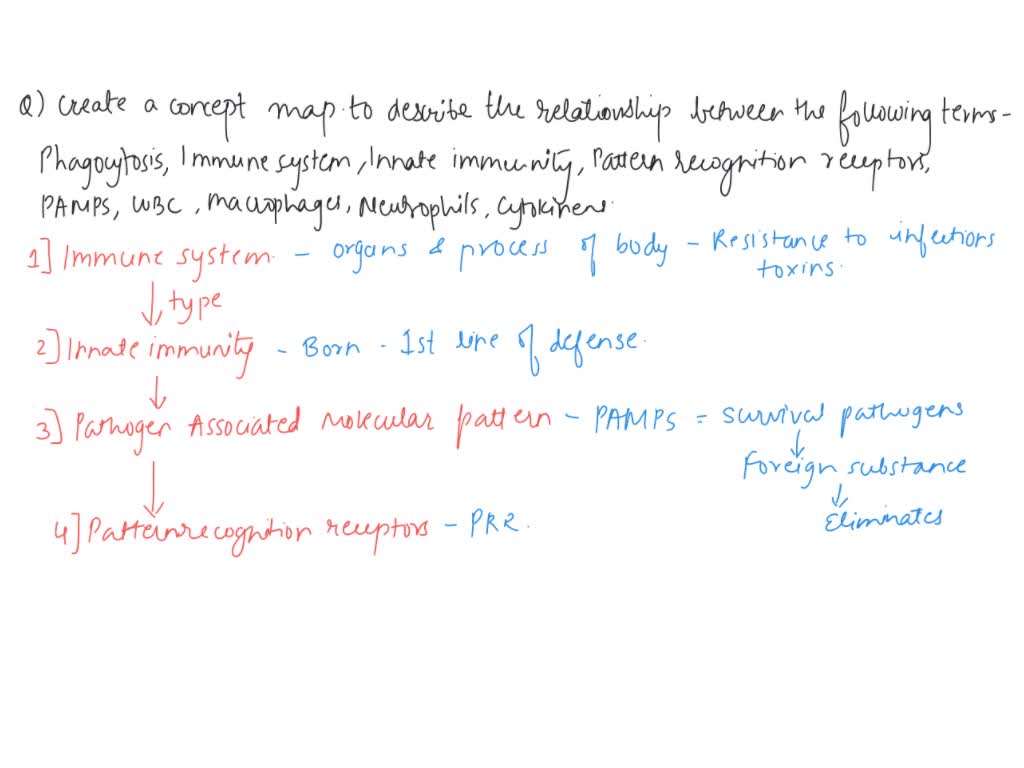 Q) Create a concept map to describe the relationship between the following terms-
Phagocytosis, Immune system, Innate immunity, Pattern recognition receptors,
PAMPS, WBC, Macrophages, Neutrophils, Cytokines.
1] Immune system - organs & process of body - Resistance to infections
toxins.
↓ type
2] Innate immunity - Born - 1st line of defense.
↓
3] Pathogen Associated Molecular pattern - PAMPS = survival pathogens
↓
Foreign substance
↓
↓
4] Pattern recognition receptors - PRR.
Eliminates